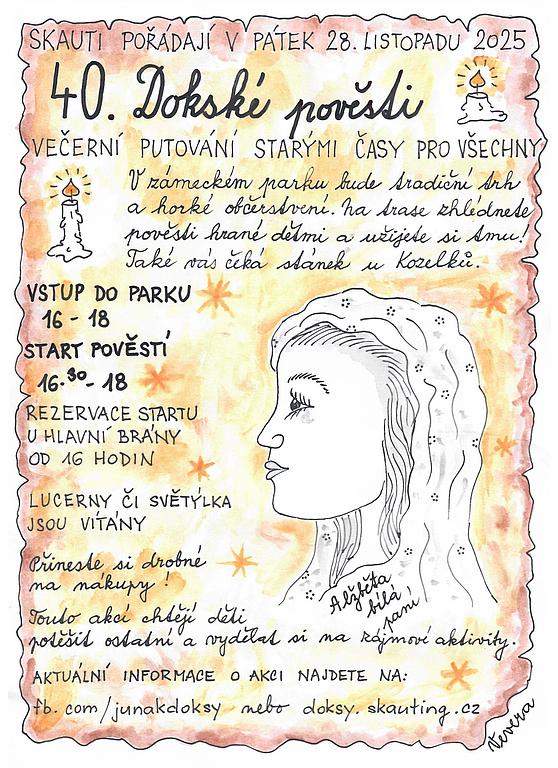 SKAUTI POŘÁDAJÍ V PÁTEK 28. LISTOPADU 2025
40. Dokské pověsti
VEČERNÍ PUTOVÁNÍ STARÝMI ČASY PRO VŠECHNY
V zámeckém parku bude tradiční trh
a horké občerstvení. Na trase zhlédnete
pověsti hrané dětmi a užijete si tmu!
Také vás čeká stánek u Kozelků.
VSTUP DO PARKU
16 - 18
START POVĚSTÍ
16.30 - 18
REZERVACE STARTU
U HLAVNÍ BRÁNY
OD 16 HODIN
LUCERNY ČI SVĚTÝLKA
JSOU VÍTÁNY
Přineste si drobné
na nákupy!
Touto akcí chtějí děti
potěšit ostatní a vydělat si na zájmové aktivity.
Alžběta
bílá
paní
AKTUÁLNÍ INFORMACE O AKCI NAJDETE NA:
fb.com/junakdoksy nebo doksy.skauting.cz
Vevera